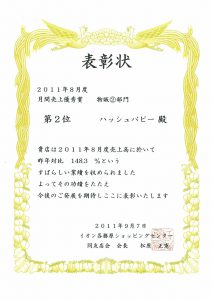 表彰状
2011年8月度
月間売上優秀賞　物販②部門
第2位　ハッシュパピー 殿
貴店は2011年8月度売上高に於いて
昨年対比　148.3　%という
すばらしい業績を収められました
よってその功績をたたえ
今後のご発展を期待しここに表彰いたします
2011年9月7日
イオン各務原ショッピングセンター
同友店会　会長　松原